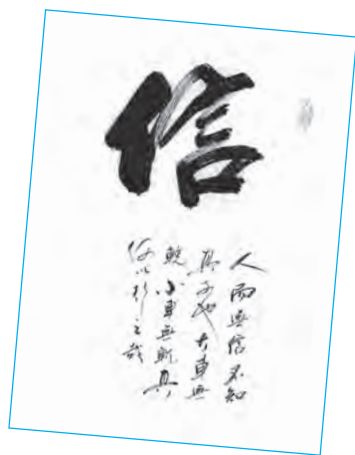 信
人而無信不知
其可也大車無
輗小車無軏其
何以行之哉